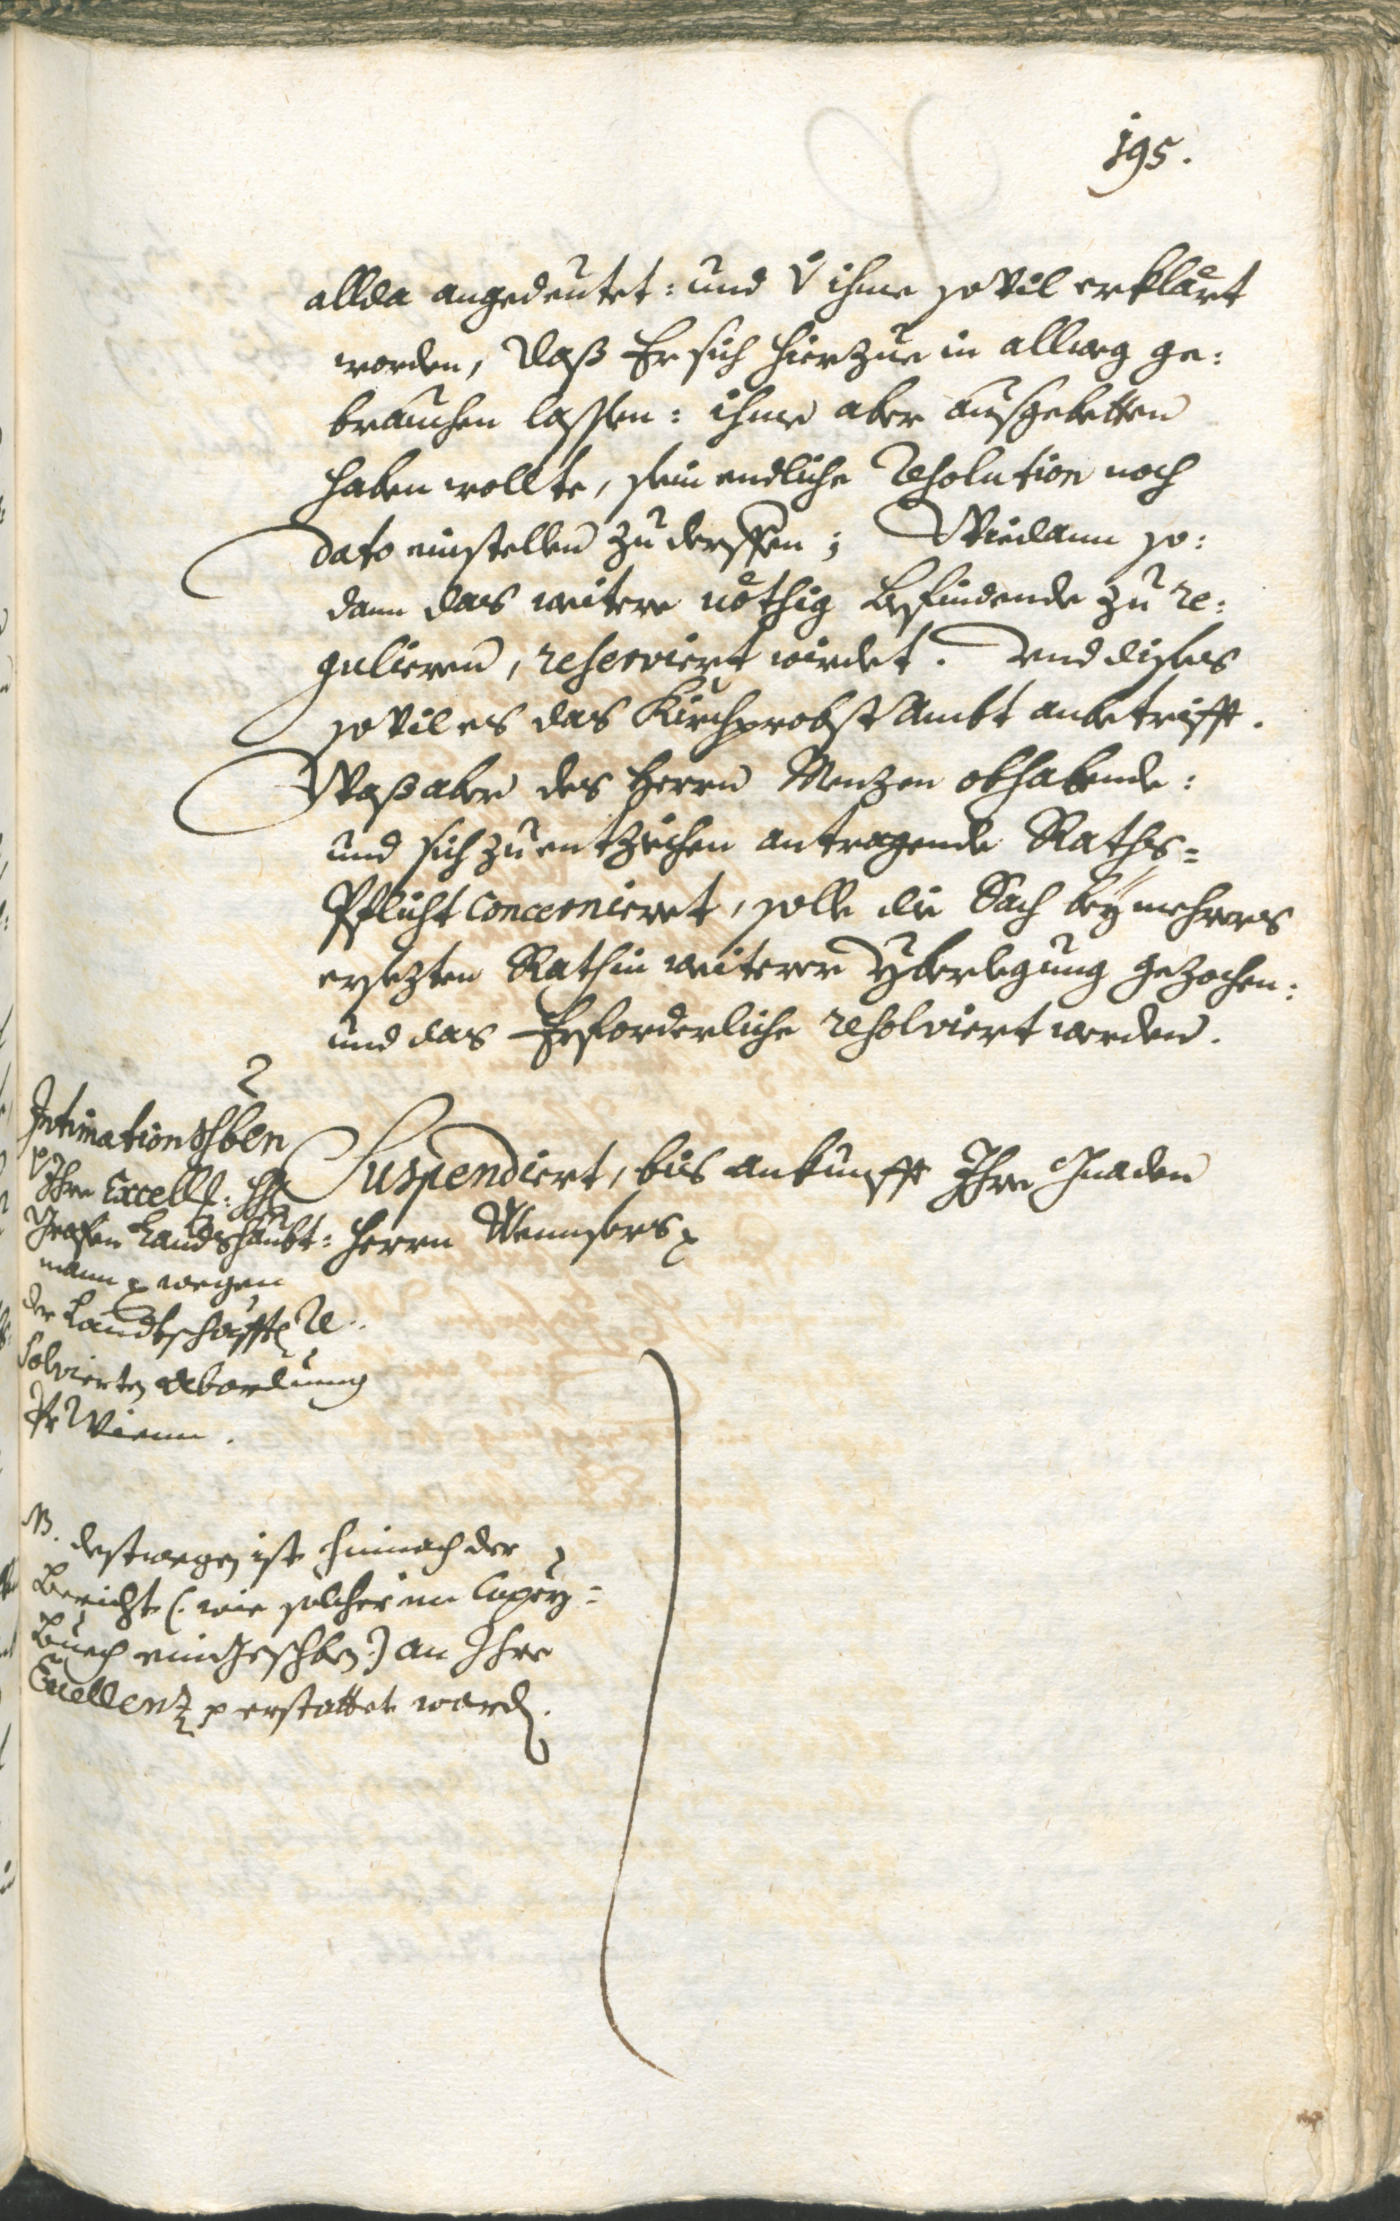 195.
allda angedeutet: und v ihme so vil erklärt
worden, daß Er sich hierzue in allweg ge:
brauchen lassen: ihme aber außgebetten
haben wollte, sein endliche Resolution noch
dato einstellen zu derffen; Wiedann so:
dann das weitere nöthig befindende zu re:
gulieren, reserviert wirdet. Und dises
so vil es das Kirchprobst Ambt anbetrifft.
Waß aber des Herrn Menzen obhabende:
und sich zu entziehen antragende Raths=
Pflicht concerniert, solle die Sach bey mehrers
ersezten Rath in weitere Yberlegung gezochen:
und das Erforderliche resolviert werden.
2
Intimationschben
Ihre Excell:
Grafen Landshaubt=
mann p wegen
der Landtschafft Re
solvierten Abordnung
Wienn.
Suspendiert, bis ankunfft Ihre Gnaden
Herrn
NB. destwegen ist hinnach der
Bericht (: wie solcher im Copey=
Buech eingeschben:) an Ihre
Excellenz p erstattet word.